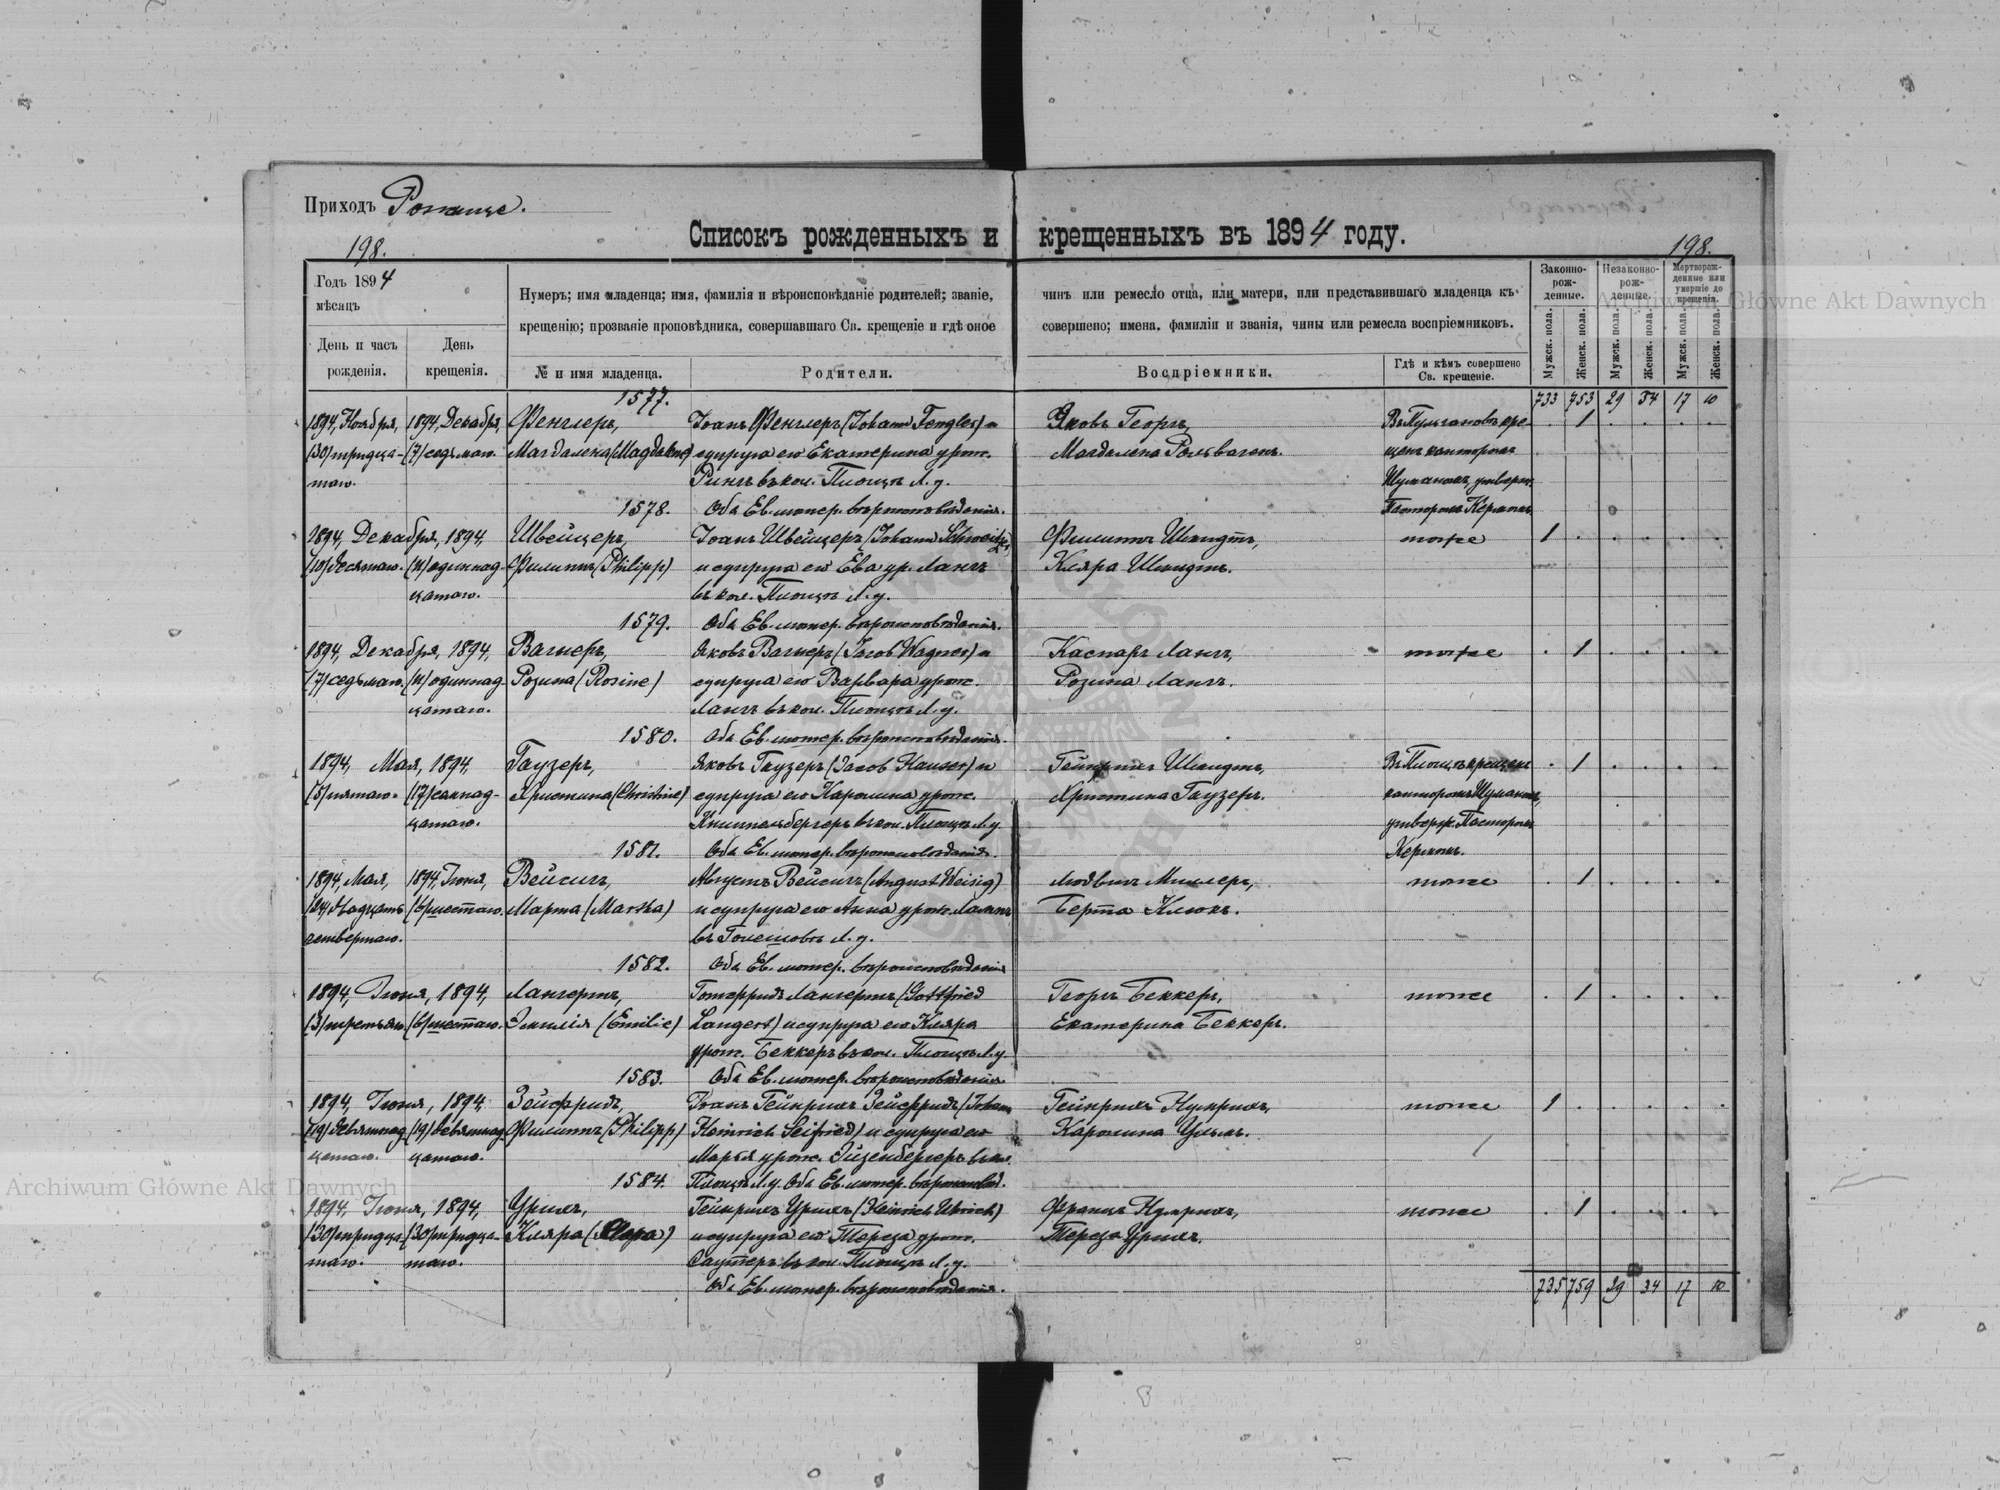 Приходъ Рожище.
198.
Списокъ рожденныхъ и крещенныхъ въ 1894 году.
198.
Годъ 1894
мѣсяцъ
День и часъ
рожденія.
День
крещенія.
Нумеръ; имя младенца; имя, фамилія и вѣроисповѣданіе родителей; званіе,
чинъ или ремесло отца, или матери, или представившаго младенца къ
крещенію; прозваніе проповѣдника, совершавшаго Св. крещеніе и гдѣ оное
совершено; имена, фамиліи и званія, чины или ремесла воспріемниковъ.
№ и имя младенца.
Родители.
Воспріемники.
Гдѣ и кѣмъ совершено
Св. крещеніе.
Законно-
рож-
денные.
Незаконно-
рож-
денные.
Мертворож-
денные или
умершіе до
крещенія.
Мужск. пола.
Женск. пола.
Мужск. пола.
Женск. пола.
Мужск. пола.
Женск. пола.
733 753 29 34 17 10
1577.
1894, Ноября, 1894, Декабря, Фенглеръ, Іоанъ Фенглеръ (Johann Fengler) и Яковъ Георгъ, 1
(30) тридца- (7) седьмаго. Магдалена (Magdalene) супруга его Екатерина урож. Магдалена
таго. въ кол. Площъ Л. у. Шуманомъ, утверж.
1578. Оба Ев. лютер. вѣроисповѣданія. Пасторомъ Керномъ
1894, Декабря, 1894, Швейцеръ, Іоанъ Швейцеръ (Johann Schweitzer) Филиппъ Шмидтъ, тоже 1
(10) десятаго. (11) одиннад- Филиппъ (Philipp) и супруга его Ева ур. Лангъ Кляра Шмидтъ.
цатаго. въ кол. Площъ Л. у.
1579. Оба Ев. лютер. вѣроисповѣданія.
1894, Декабря, 1894, Вагнеръ, Яковъ Вагнеръ (Jacob Wagner) и Каспаръ Лангъ, тоже 1
(7) седьмаго. (11) одиннад- Розина (Rosine) супруга его Варвара урож. Розина Лангъ.
цатаго. Лангъ въ кол. Площъ Л. у.
1580. Оба Ев. лютер. вѣроисповѣданія.
1894, Мая, 1894, Гаузеръ, Яковъ Гаузеръ (Jacob Hauser) и Гейнрихъ Шмидтъ, Въ Площъ крещенъ 1
(5) пятаго. (17) семнад- Христина (Christine) супруга его Каролина урож. Христина Гаузеръ. канторомъ Шуманомъ,
цатаго. въ кол. Площъ Л. у. утверж. Пасторомъ
1581. Оба Ев. лютер. вѣроисповѣданія. Керномъ.
1894, Мая, 1894, Іюня, Вейсигъ, Августъ Вейсигъ (August Weisig) Людвигъ Миллеръ, тоже 1
(24) двадцать (6) шестаго. Марта (Martha) и супруга его Анна урож. Берта Клюкъ.
четвертаго. въ Л. у.
1582. Оба Ев. лютер. вѣроисповѣданія
1894, Іюня, 1894, Лангертъ, Готфридъ Лангертъ (Gottfried Георгъ Беккеръ, тоже 1
(3) третьяго (6) шестаго. Эмилія (Emilie) Langert) и супруга его Кляра Екатерина Беккеръ.
урож. Беккеръ въ кол. Площъ Л. у.
1583. Оба Ев. лютер. вѣроисповѣданія.
1894, Іюня, 1894, Зейфридъ, Іоанъ Гейнрихъ Зейфридъ (Johann Гейнрихъ тоже 1
(19) девятнад- (19) девятнад- Филиппъ (Philipp) Heinrich Seifried) и супруга его Каролина
цатаго. цатаго. Марья урож. Эйзенбергеръ въ кол.
1584. Площъ Л. у. Оба Ев. лютер. вѣроисповѣд.
1894, Іюня, 1894, Урихъ, Гейнрихъ Урихъ (Heinrich Uhrich) Францъ тоже 1
(30) тридца- (30) тридца- Кляра (Clara) и супруга его Тереза урож. Тереза Урихъ.
таго. таго. Саутеръ въ кол. Площъ Л. у.
Оба Ев. лютер. вѣроисповѣданія.
735 759 29 34 17 10
Archiwum Główne Akt Dawnych
Archiwum Główne Akt Dawnych